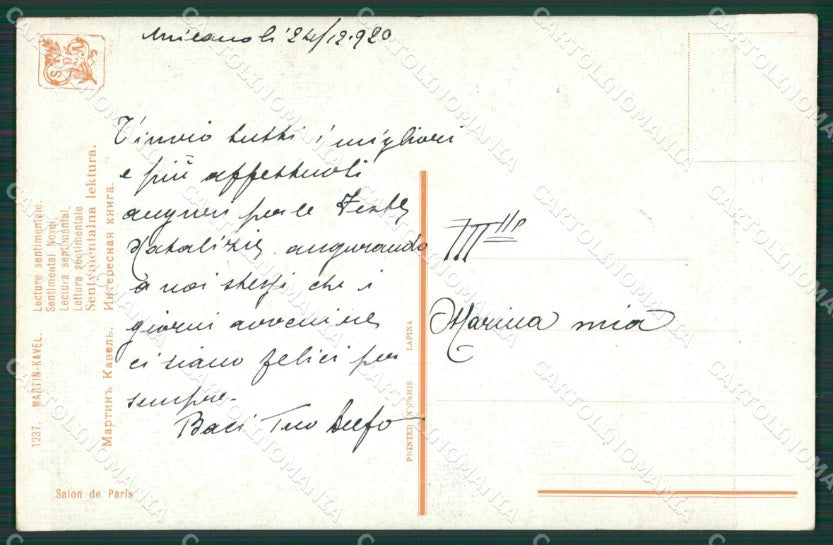 24/12.920
T'invio tutti i migliori
e più affettuosi
auguri per le Feste
Natalizie augurando
a noi stessi che i
giorni avvenire
ci siano felici per
sempre.
Baci Tuo
Marina mia
1237. MARTIN-KAVEL.
Lecture sentimentale.
Sentimental Novel.
Lectura sentimental.
Lettura sentimentale
Sentymentalna lektura.
Мартинъ Кавель. Интересная книга.
Salon de Paris
PRINTED IN PARIS LAPINA
CARTOLINOMANIA